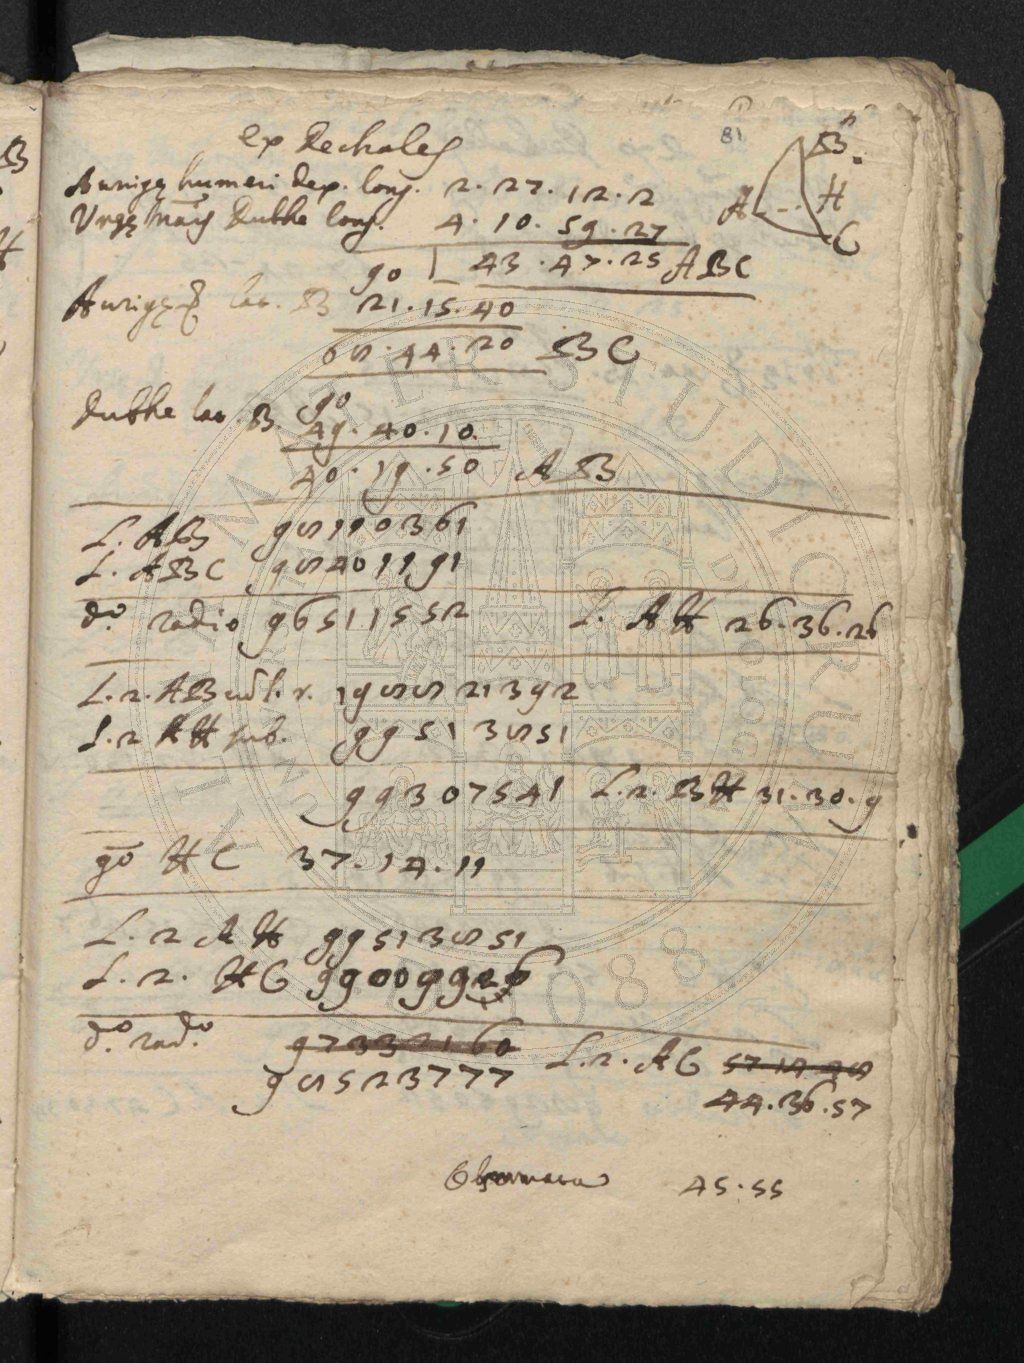 ex Dechales
81
B
A H
C
Aurigę humeri dex. long. 2. 27. 12. 2
Vrsę maj Dubhe long. 4. 10. 59. 27
90 | 43. 47. 25 ABC
Aurigę lat. B 21. 15. 40
68. 44. 20 BC
90
Dubhe lat. B. 49. 40. 10.
40. 19. 50 AB
L. AB 98110361
L. ABC 98401191
do. radio 96511552 L. AH 26. 36. 26
L. 2. AB r. 198821392
L. 2 AH sub. 99513851
99307541 L. 2. BH 31. 30. 9
go HC 37. 14. 11
L. 2 AH 99513851
L. 2. HC 99009926
do. rado. 97332160 L. 2. AC
98523777 44. 36. 57
Observata 45. 55